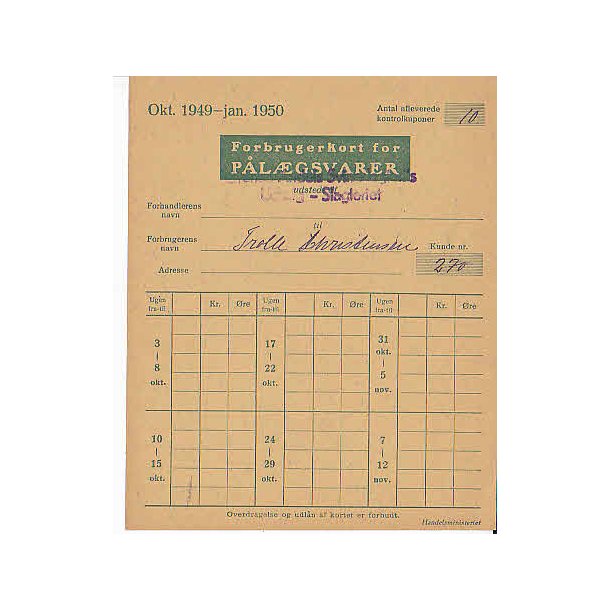 Okt. 1949-jan. 1950
Antal afleverede
kontrolkuponer 10.
Forbrugerkort for
PÅLÆGSVARER
udstedt af
- Slagteriet
Forhandlerens
navn
til
Forbrugerens
navn
Trolle Christensen
Kunde nr.
Adresse
270
Ugen fra-til Kr. Øre Ugen fra-til Kr. Øre Ugen fra-til Kr. Øre
3 - 8 okt. 17 - 22 okt. 31 okt. - 5 nov.
10 - 15 okt. 24 - 29 okt. 7 - 12 nov.
Overdragelse og udlån af kortet er forbudt.
Handelsministeriet